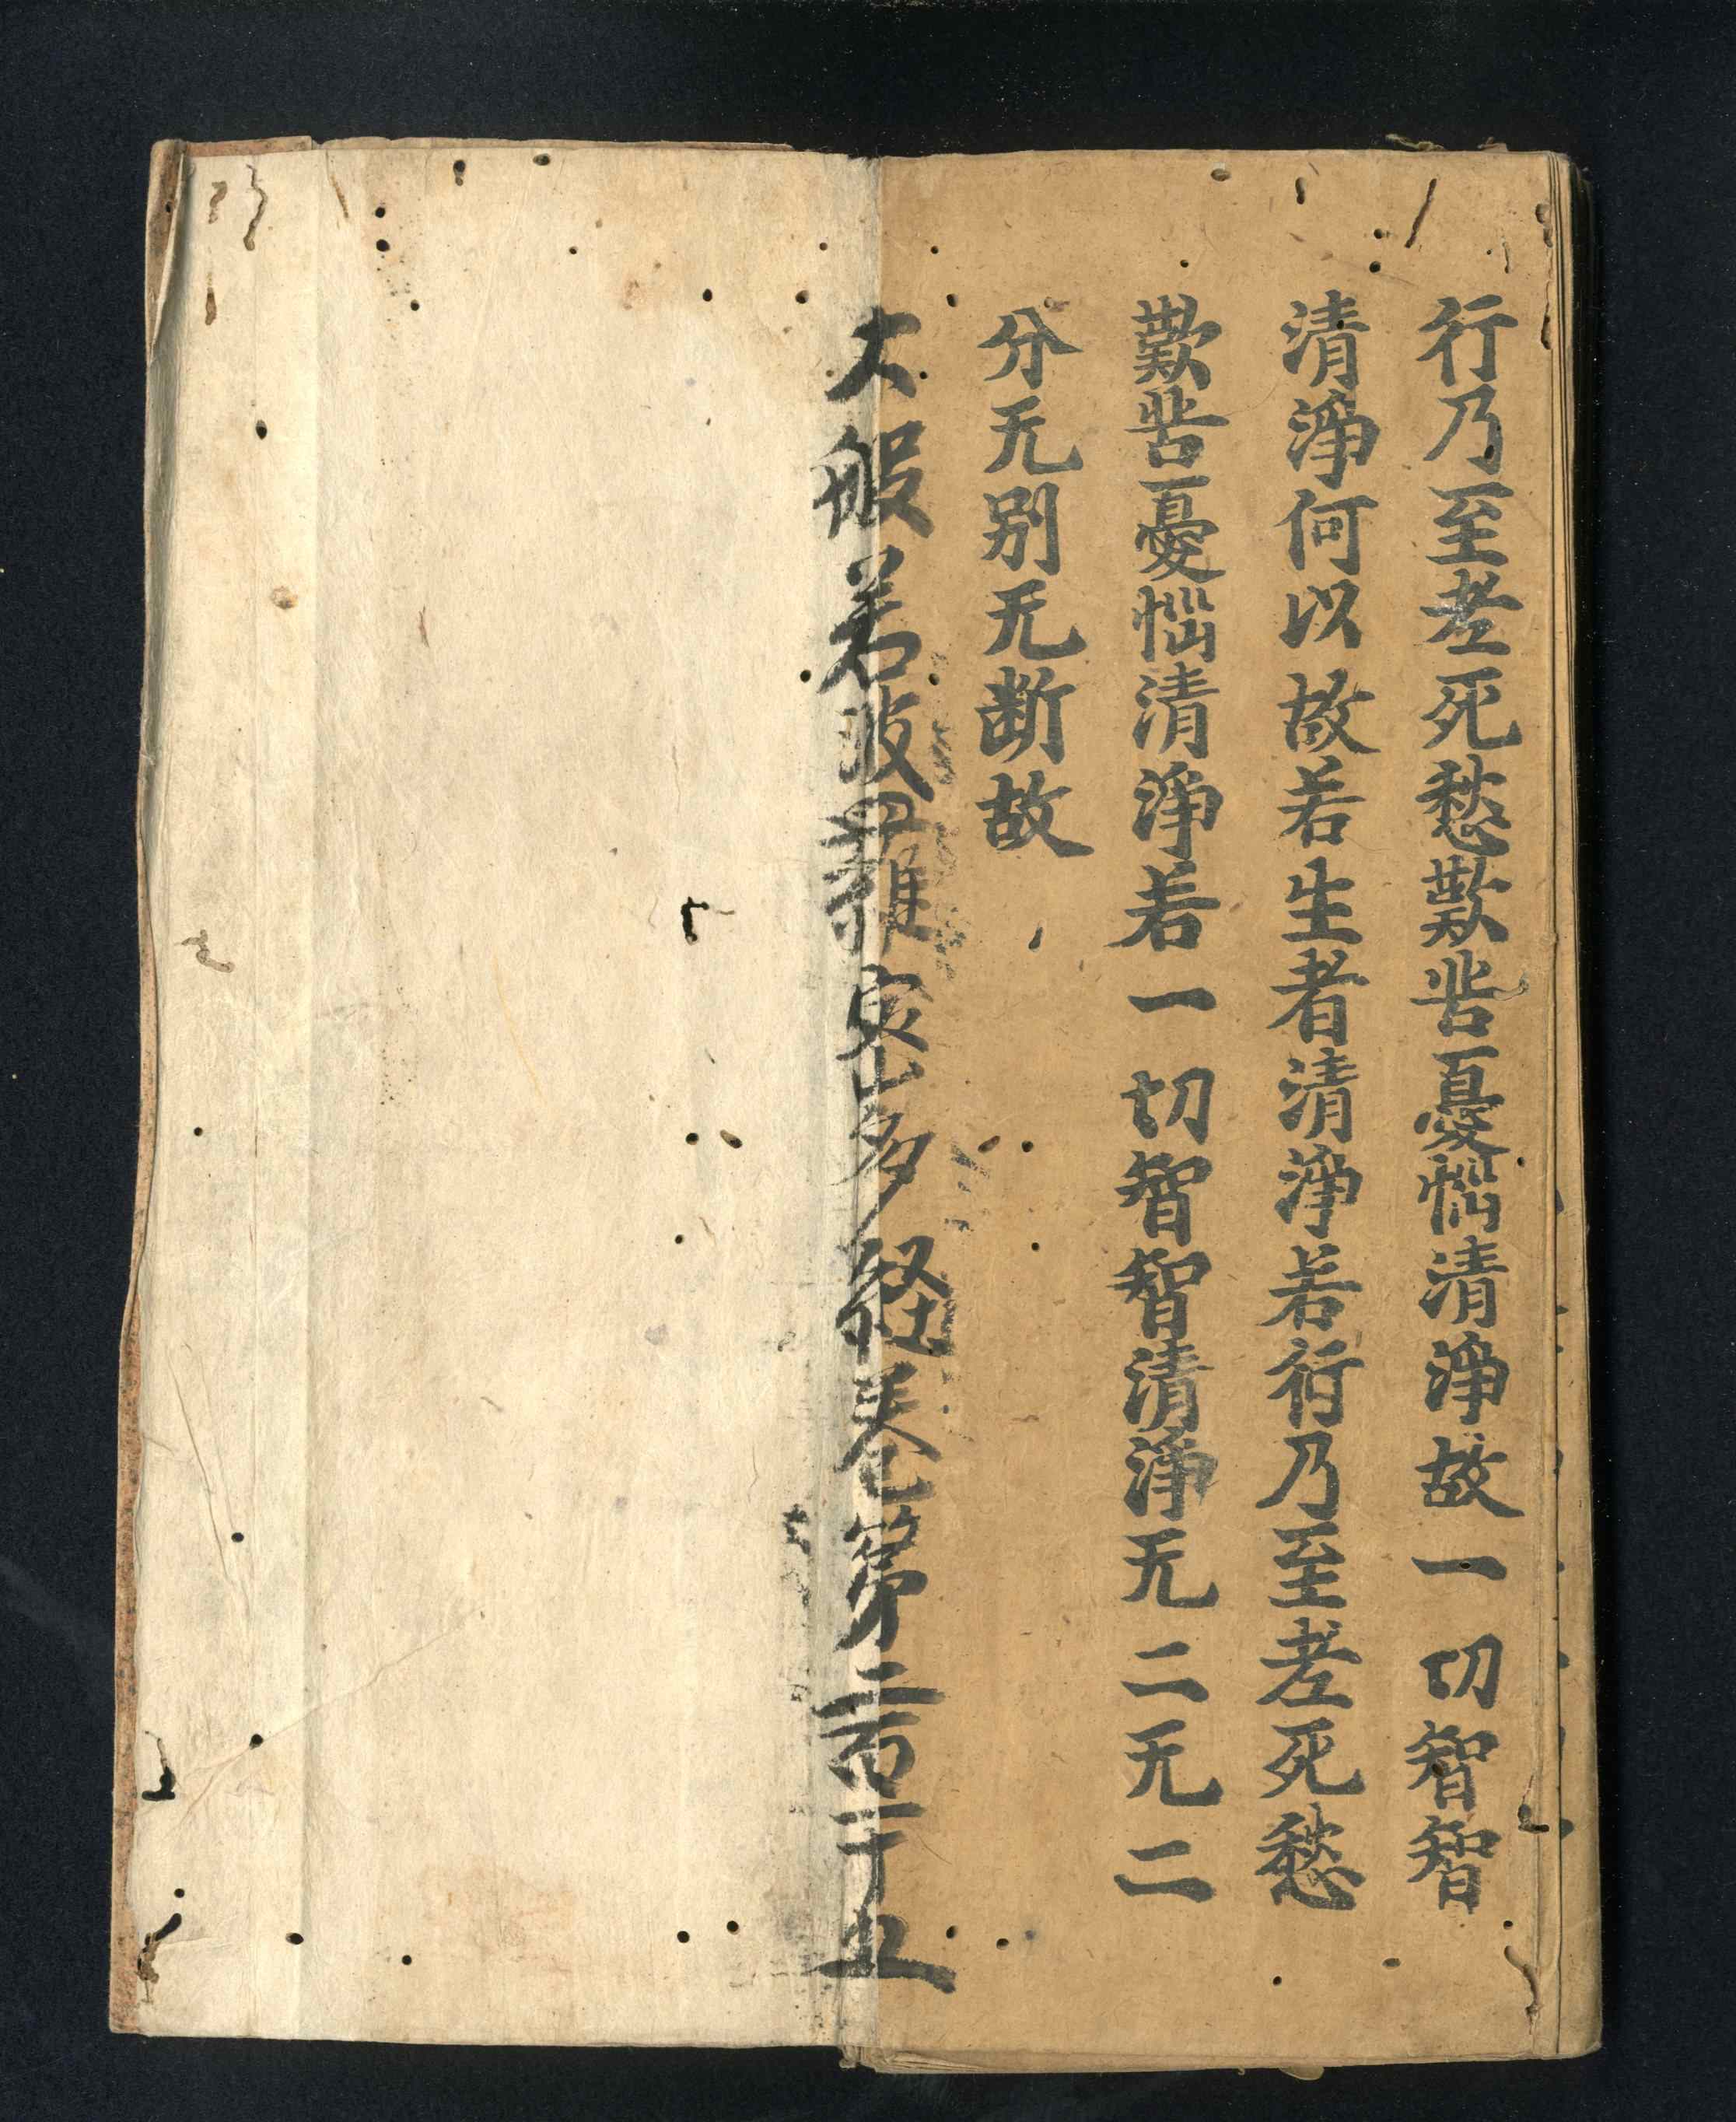 行乃至老死愁歎苦憂惱清淨故一切智智
清淨何以故若生者清淨若行乃至老死愁
歎苦憂惱清淨若一切智智清淨无二无二
分无別无断故
大般若波羅蜜多経巻第二百一十五